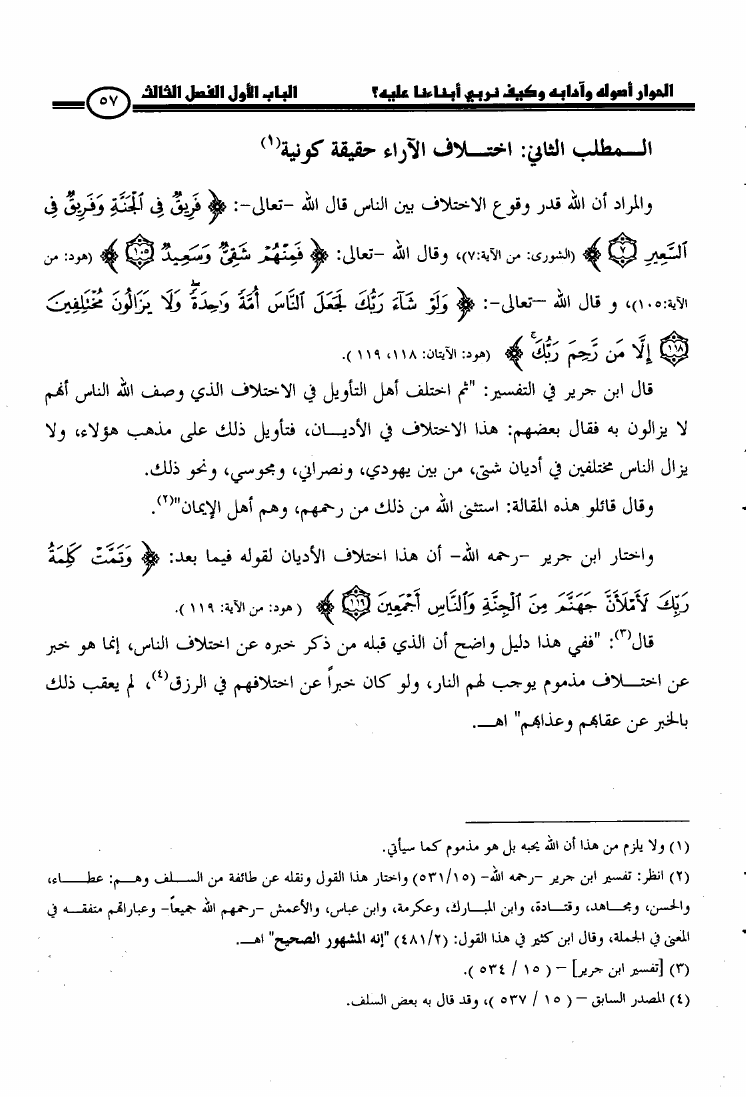 الحوار أصوله وآدابه وكيف نربي أبناءنا عليه؟ الباب الأول الفصل الثالث ٥٧
الـــمطلب الثاني: اختـــلاف الآراء حقيقة كونية(١)
والمراد أن الله قدر وقوع الاختلاف بين الناس قال الله -تعالى-: ﴿ فَرِيقٌ فِي الْجَنَّةِ وَفَرِيقٌ فِي
السَّعِيرِ ٧ ﴾ (الشورى: من الآية:٧)، وقال الله -تعالى: ﴿ فَمِنْهُمْ شَقِيٌّ وَسَعِيدٌ ١٠٥ ﴾ (هود: من
الآية:١٠٥)، و قال الله -تعالى-: ﴿ وَلَوْ شَآءَ رَبُّكَ لَجَعَلَ النَّاسَ أُمَّةً وَاحِدَةً ۖ وَلَا يَزَالُونَ مُخْتَلِفِينَ
١١٨ إِلَّا مَن رَّحِمَ رَبُّكَ ۚ ﴾ (هود: الآيتان: ١١٨، ١١٩ ).
قال ابن جرير في التفسير: "ثم اختلف أهل التأويل في الاختلاف الذي وصف الله الناس أنهم
لا يزالون به فقال بعضهم: هذا الاختلاف في الأديـــان، فتأويل ذلك على مذهب هؤلاء، ولا
يزال الناس مختلفين في أديان شتى، من بين يهودي، ونصراني، ومجوسي، ونحو ذلك.
وقال قائلو هذه المقالة: استثنى الله من ذلك من رحمهم، وهم أهل الإيمان"(٢).
واختار ابن جرير -رحمه الله- أن هذا اختلاف الأديان لقوله فيما بعد: ﴿ وَتَمَّتْ كَلِمَةُ
رَبِّكَ لَأَمْلَأَنَّ جَهَنَّمَ مِنَ الْجِنَّةِ وَالنَّاسِ أَجْمَعِينَ ١١٩ ﴾ ( هود: من الآية: ١١٩ ).
قال(٣): "ففي هذا دليل واضح أن الذي قبله من ذكر خبره عن اختلاف الناس، إنما هو خبر
عن اختـــلاف مذموم يوجب لهم النار، ولو كان خبراً عن اختلافهم في الرزق(٤)، لم يعقب ذلك
بالخبر عن عقابهم وعذابهم" اهـــ.
(١) ولا يلزم من هذا أن الله يحبه بل هو مذموم كما سيأتي.
(٢) انظر: تفسير ابن جرير -رحمه الله- (٥٣١/١٥) واختار هذا القول ونقله عن طائفة من الســـلف وهـــم: عطـــاء،
والحسن، ومجـــاهد، وقتـــادة، وابن المبـــارك، وعكرمة، وابن عباس، والأعمش -رحمهم الله جميعاً- وعباراتهم متفقـــه في
المعنى في الجملة، وقال ابن كثير في هذا القول: (٤٨١/٢) "إنه المشهور الصحيح" اهـــ.
(٣) [تفسير ابن جرير] – ( ١٥ / ٥٣٤ ).
(٤) المصدر السابق – ( ١٥ / ٥٣٧ )، وقد قال به بعض السلف.